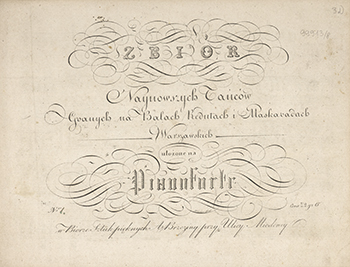 ZBIÓR
Naynowszych Tańców
Granych na Balach Redutach i Maskaradach
Warszawskich
ułożone na
Pianoforte
No. 1.
w Biorze Sztuk pięknych A Brzeziny przy Ulicy Miodowey